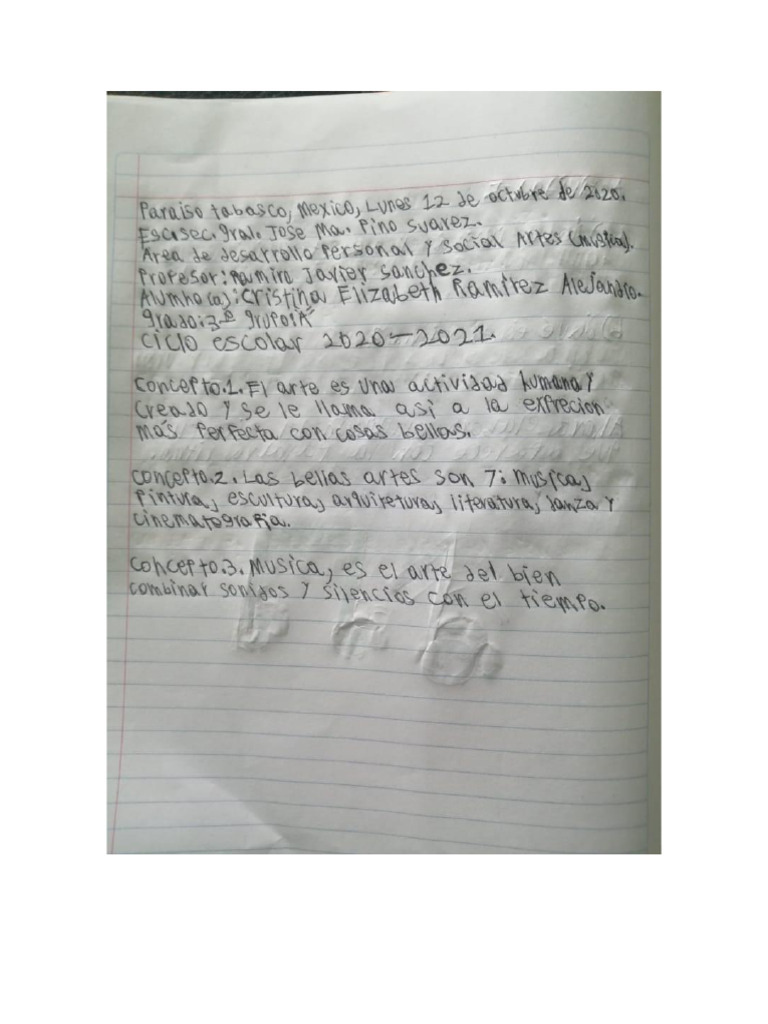 Paraiso tabasco, Mexico, Lunes 12 de octubre de 2020.
Esc.sec.gral. Jose Ma. Pino Suarez.
Area de desarrollo Personal y Social Artes (musica).
Profesor: Ramiro Javier Sanchez.
Alumno(a): Cristina Elizabeth Ramirez Alejandro.
grado: 3º grupo: "A"
Ciclo escolar 2020-2021.
Concepto.1. El arte es una actividad humana y
Creado y se le llama asi a la exprecion
más Perfecta con cosas bellas.
Concepto.2. Las bellas artes son 7: Musica,
Pintura, escultura, arquiretura, literatura, danza y
cinematografia.
Concepto.3. Musica, es el arte del bien
combinar sonidos y silencios con el tiempo.